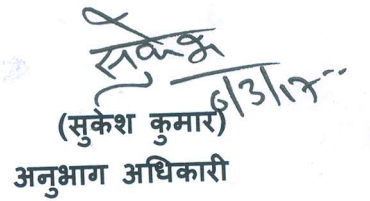 सुकेश
6/3/17
(सुकेश कुमार)
अनुभाग अधिकारी